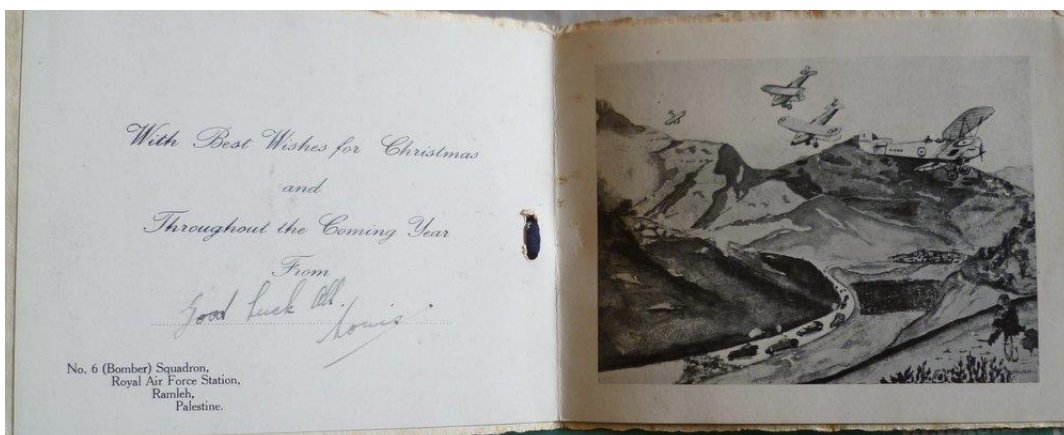 With Best Wishes for Christmas
and
Throughout the Coming Year
From
Good Luck All.
Louis
No. 6 (Bomber) Squadron,
Royal Air Force Station,
Ramleh,
Palestine.